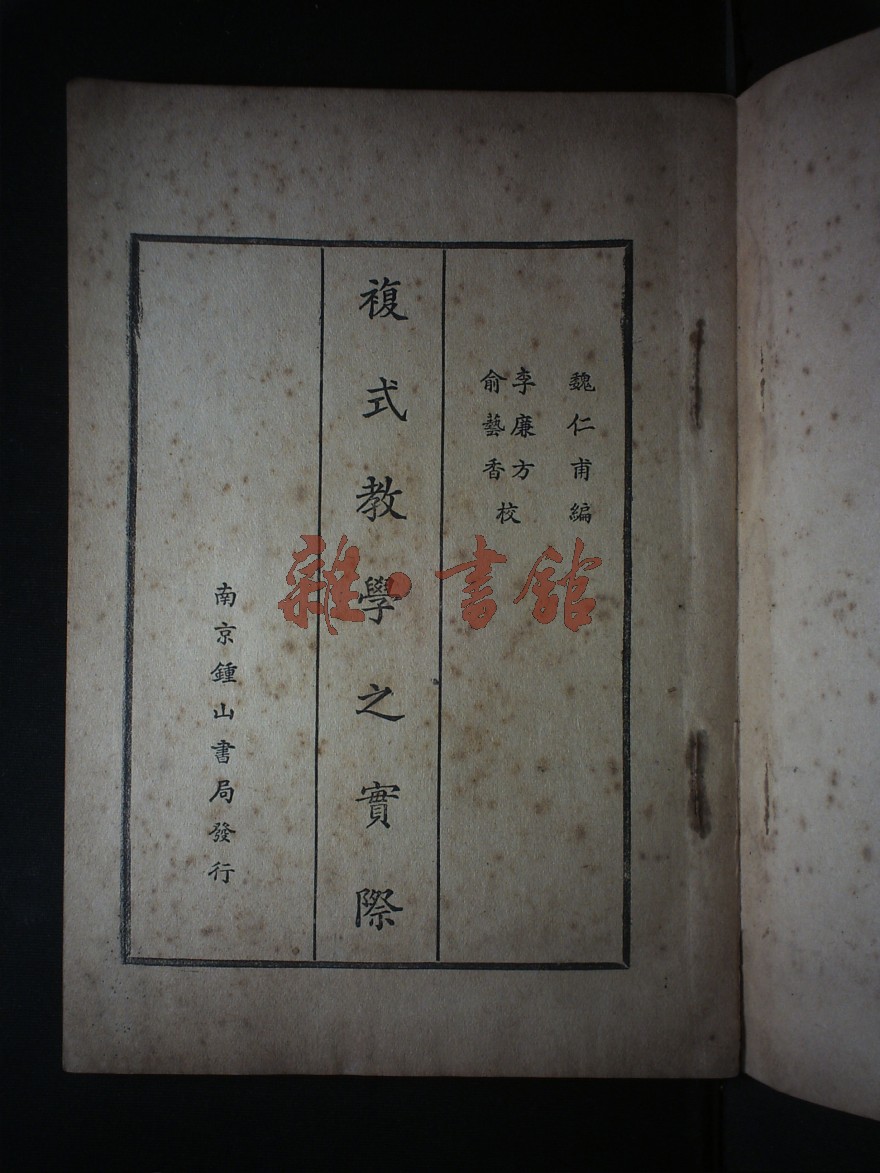 魏仁甫編
李廉方
俞藝香
校
複式教學之實際
南京鍾山書局發行
雜·書館